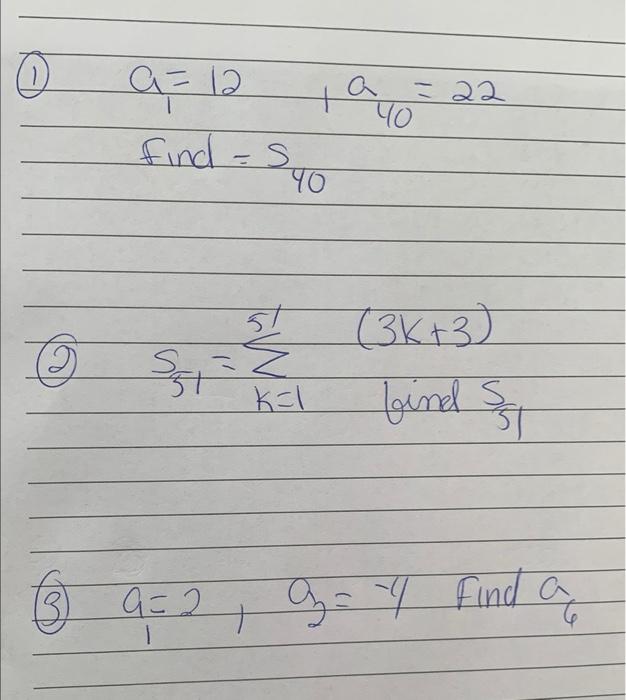 ① a₁ = 12 , a₄₀ = 22
find = S₄₀
② S₅₁ = ∑ₖ₌₁⁵¹ (3K+3)
find S₅₁
③ a₁ = 2 , a₂ = -4 Find a₆